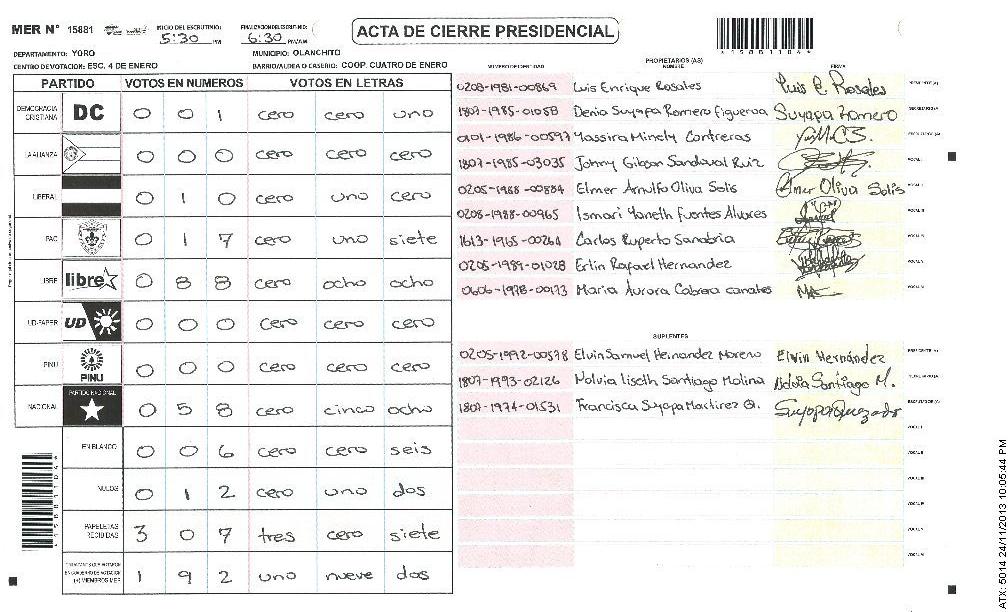 MER N° 15881
INICIO DEL ESCRUTINIO: 5:30 PM
FINALIZACION DEL ESCRUTINIO: 6:30 PM/AM
ACTA DE CIERRE PRESIDENCIAL
*15881104*
DEPARTAMENTO: YORO
MUNICIPIO: OLANCHITO
CENTRO DE VOTACION: ESC. 4 DE ENERO
BARRIO/ALDEA O CASERIO: COOP. CUATRO DE ENERO
PARTIDO VOTOS EN NUMEROS VOTOS EN LETRAS
DEMOCRACIA CRISTIANA DC 0 0 1 cero cero uno
LA ALIANZA 0 0 0 cero cero cero
LIBERAL 0 1 0 cero uno cero
PAC 0 1 7 cero uno siete
LIBRE libre 0 8 8 cero ocho ocho
UD-FAPER UD 0 0 0 cero cero cero
PINU PINU 0 0 0 cero cero cero
NACIONAL PARTIDO NACIONAL 0 5 8 cero cinco ocho
EN BLANCO 0 0 6 cero cero seis
NULOS 0 1 2 cero uno dos
PAPELETAS RECIBIDAS 3 0 7 tres cero siete
(+) MIEMBROS MER 1 9 2 uno nueve dos
PROPIETARIOS (AS)
NUMERO DE IDENTIDAD NOMBRE FIRMA
0208-1981-00869 Luis Enrique Rosales Luis E. Rosales PRESIDENTE (A)
1807-1985-01058 Denia Suyapa Romero Figueroa Suyapa Romero SECRETARIO (A)
0101-1986-00597 Yassira Minely Contreras ESCRUTADOR (A)
1807-1985-03035 Johny Gibson Sandoval Ruiz VOCAL I
0205-1988-00884 Elmer Arnulfo Oliva Solis Elmer Oliva Solis VOCAL II
0208-1988-00965 Ismari Yaneth Fuentes Alvares VOCAL III
1613-1965-00264 Carlos Ruperto Sanabria VOCAL IV
0205-1989-01028 Erlin Rafael Hernandez VOCAL V
0606-1978-00173 Maria Aurora Cabrera canales VOCAL VI
SUPLENTES
0205-1992-00578 Elvin Samuel Hernandez Moreno Elvin Hernández PRESIDENTE (A)
1807-1993-02126 Nolvia Liseth Santiago Molina Nolvia Santiago M. SECRETARIO (A)
1807-1974-01531 Francisca Suyapa Martinez Q. Suyapa Quezada ESCRUTADOR (A)
VOCAL I
VOCAL II
VOCAL III
VOCAL IV
VOCAL V
VOCAL VI
ATX: 5014 24/11/2013 10:05:44 PM